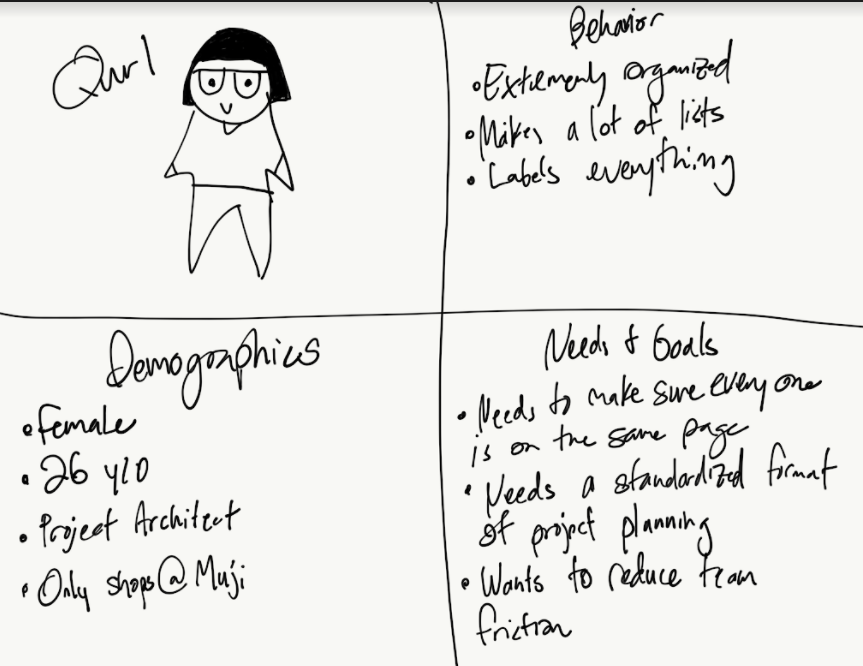 Qurl
Behavior
• Extremely organized
• Makes a lot of lists
• Labels everything
Demographics
• Female
• 26 y/o
• Project Architect
• Only shops @ Muji
Needs & Goals
• Needs to make sure everyone
is on the same page
• Needs a standardized format
of project planning
• Wants to reduce team
friction